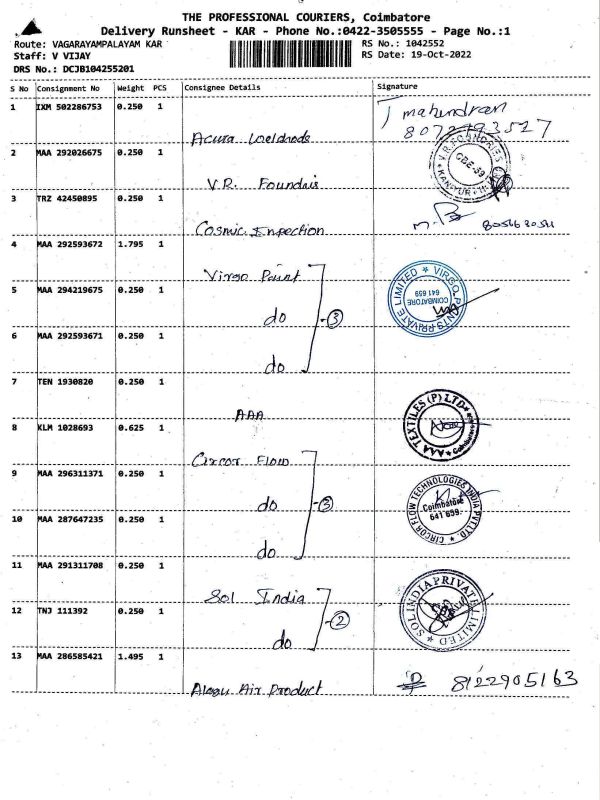 THE PROFESSIONAL COURIERS, Coimbatore
Delivery Runsheet - KAR - Phone No.:0422-3505555 - Page No.:1
Route: VAGARAYAMPALAYAM KAR
RS No.: 1042552
Staff: V VIJAY
RS Date: 19-Oct-2022
DRS No.: DCJB104255201
S No Consignment No Weight PCS Consignee Details Signature
1 IXM 502286753 0.250 1
mahendran
Acura
2 MAA 292026675 0.250 1
V.R. FOUNDRIES
CBE-59
KANIYUR
V.R.
3 TRZ 42450895 0.250 1
Cosmic Inpection
4 MAA 292593672 1.795 1
Virgo Paint
VIRGO PAINTS PRIVATE LIMITED
COIMBATORE
641 659
5 MAA 294219675 0.250 1
do
3
6 MAA 292593671 0.250 1
do
7 TEN 1930820 0.250 1
AAA
AAA TEXTILES (P) LTD
8 KLM 1028693 0.625 1
Circor Flow
9 MAA 296311371 0.250 1
do
3
CIRCOR FLOW TECHNOLOGIES INDIA PVT LTD.
Coimbatore
641 659.
10 MAA 287647235 0.250 1
do
11 MAA 291311708 0.250 1
Sol India
SOL INDIA PRIVATE LIMITED
12 TNJ 111392 0.250 1
2
do
13 MAA 286585421 1.495 1
Air Product
8122905163